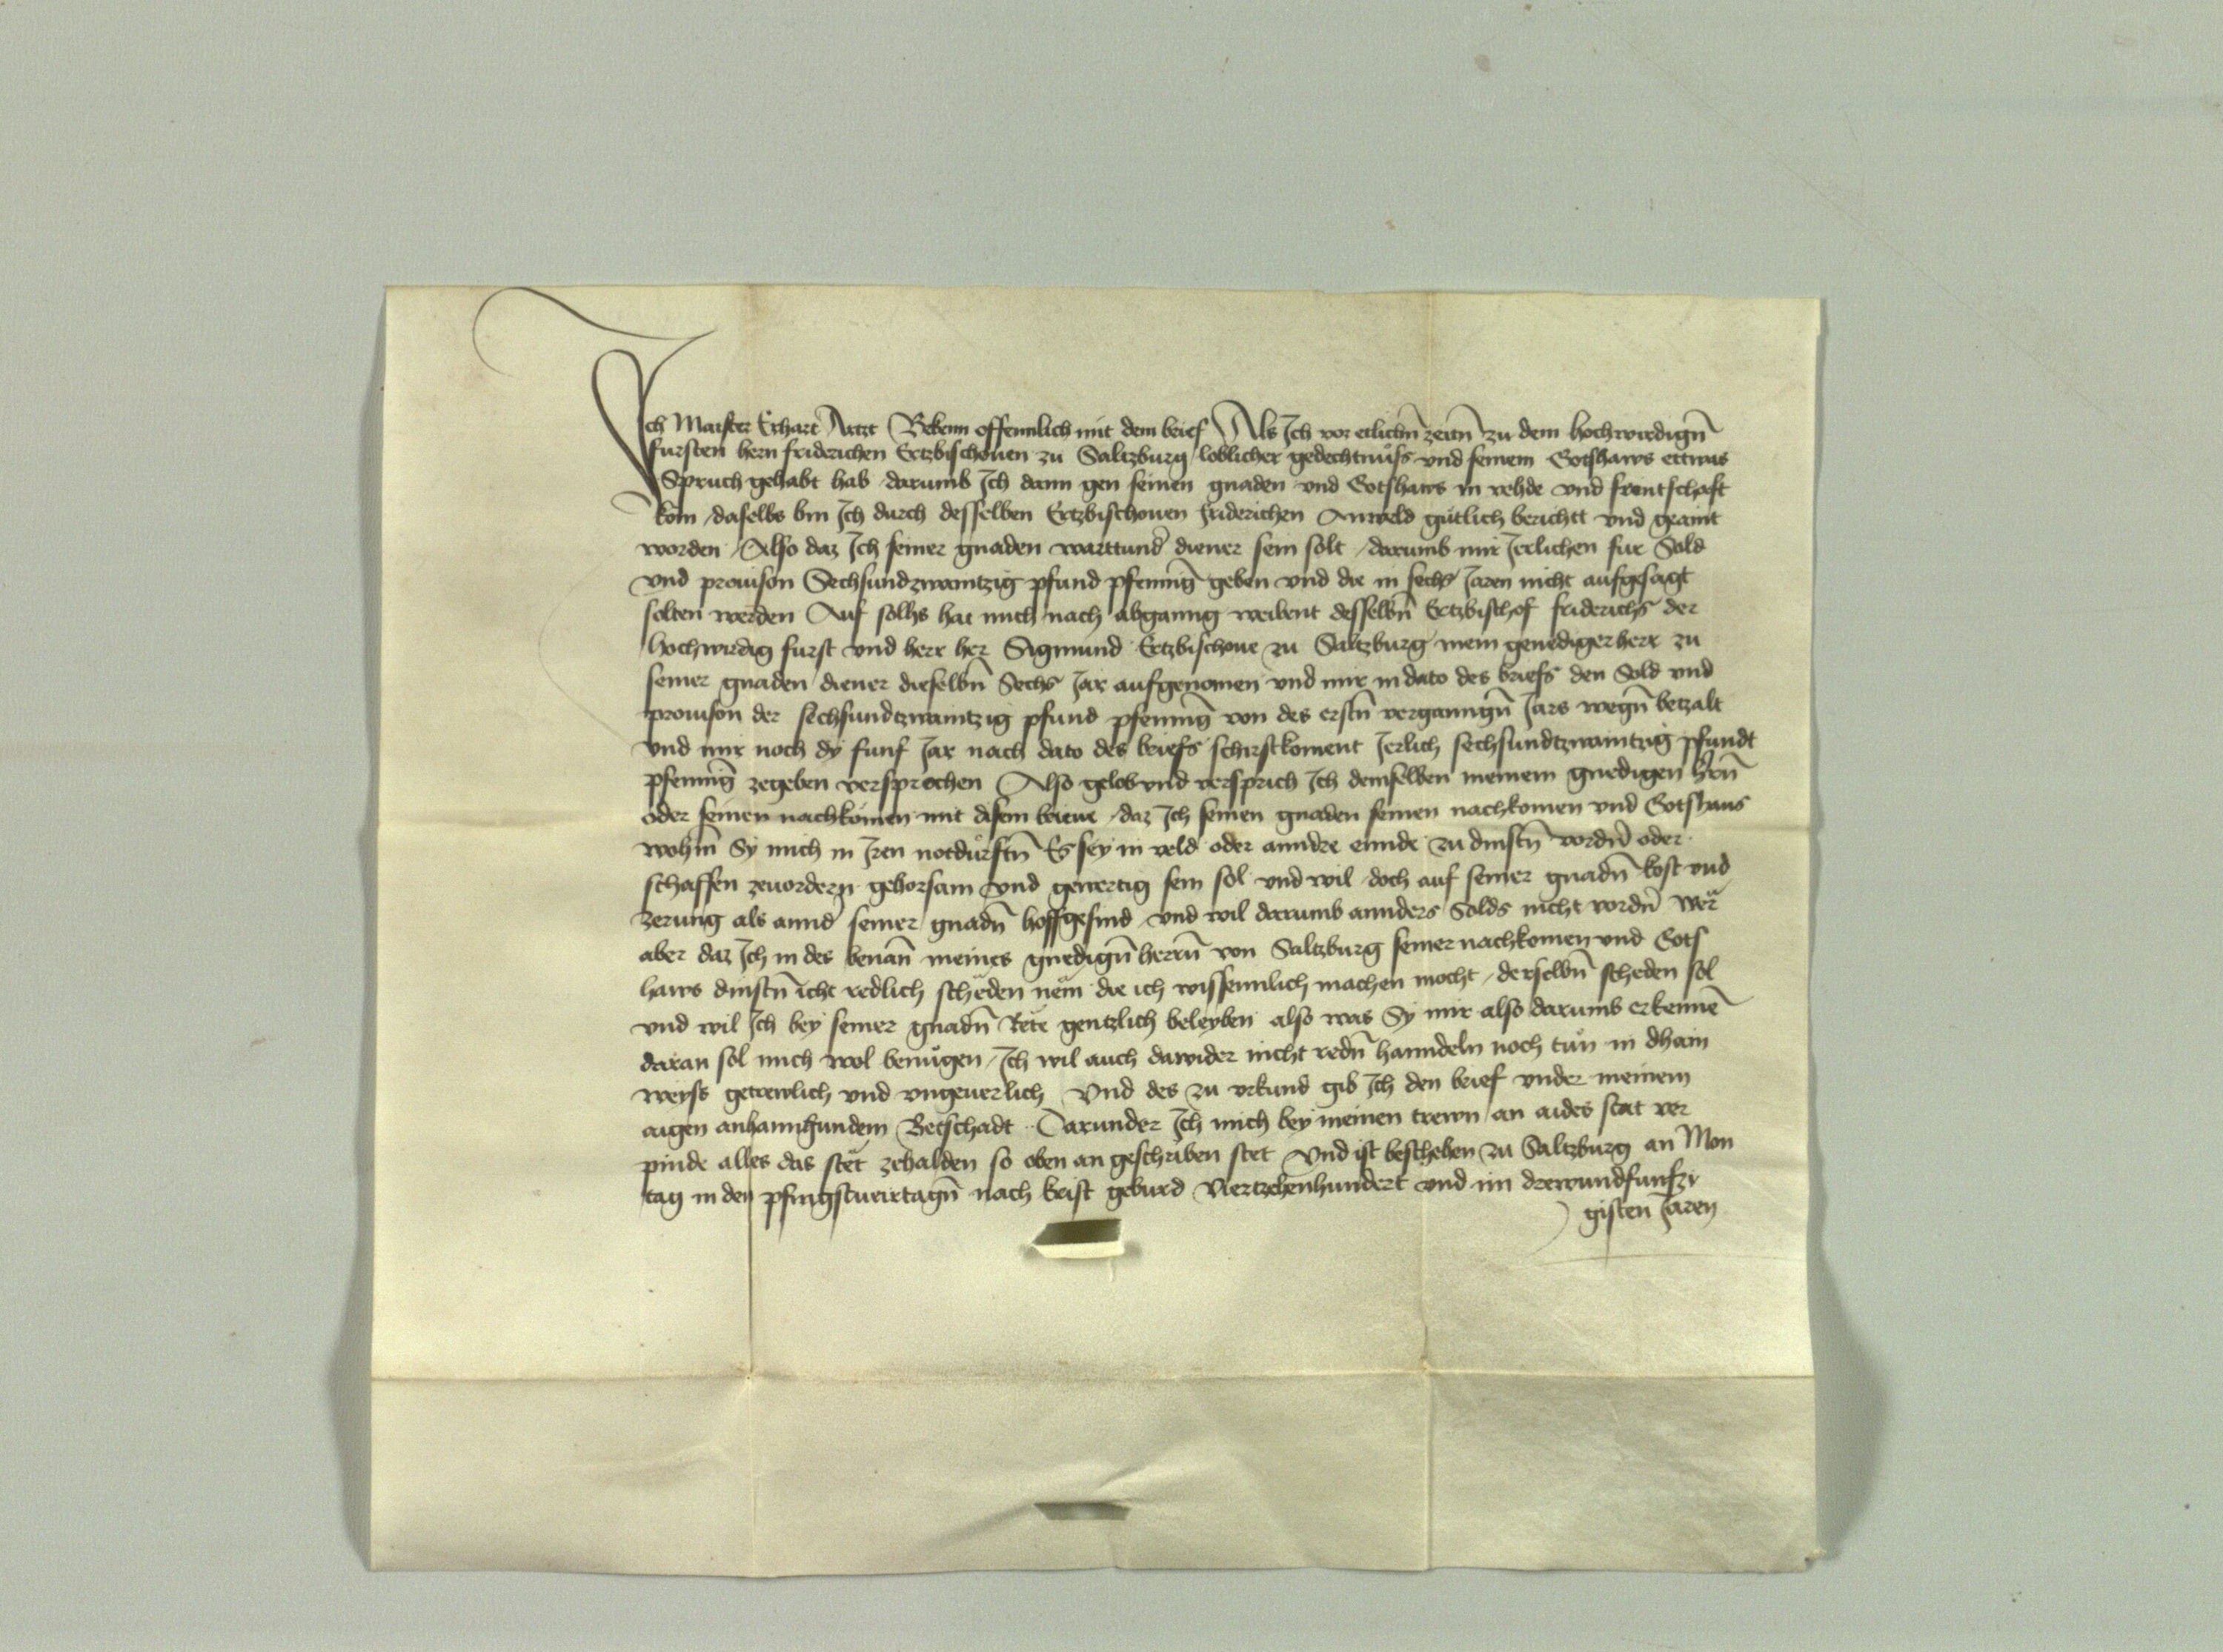 Ich Maister Erhart Artzt Bekenn offennlich mit dem brief Als Ich vor etlichn̄ zeitn̄ zu dem hochwirdign̄
fursten hern friderichen Ertzbischouen zu Saltzburg loblicher gedechtnuͤss und seinem Gotshaws ettwas
Spruch gehabt hab darumb Ich dann gen seinen gnaden und Gotshaws in vehde und feintschaft
kom / daselbs bin Ich durch desselben Ertzbischouen friderichen Anweld guͤtlich bericht und geaint
worden / Also daz Ich seiner gnaden warttund diener sein solt / darumb mir Jerlichen fur Sold
und prouison Sechsundzwaintzig pfund pfenniḡ geben und die in sechs Jaren nicht aufgesagt
solten werden Auf solhs hat mich nach abganng weilent desselbn̄ Ertzbischof friderichs der
hochwirdig furst und herr her Sigmund Ertzbischoue zu Saltzburg mein genediger herr zu
seiner gnaden diener dieselbn̄ Sechs Jar aufgenomen und mir in dato des briefs den Sold und
prouison der sechsundtzwaintzig pfund pfenniḡ von des erstn̄ vergangn̄ Jars wegn̄ betzalt
und mir noch dy funf Jar nach dato des briefs schirstkoment Jerlich sechsundtzwaintzig pfundt
pfenniḡ zegeben versprochen Also gelob und versprich Ich demselben meinem gnedigen hern̄
oder seinen nachkomen mit disem brieue / daz Ich seinen gnaden seinen nachkomen und Gotshaus
wohin̄ Sy mich in Iren notduͤrftn̄ Es sey in veld oder anndre ennde zu dinstn̄ vordn̄ oder
schaffen zeuordern gehorsam und gewertig sein sol und wil doch auf seiner gnadn̄ kost und
zerung als annd̄ seiner gnadn̄ hoffgesind und wil darumb annders Solds nicht vordn̄ Wer
aber daz Ich in des benan̄ meines gnedign̄ herrn̄ von Saltzburg seiner nachkomen und Gots
haws dinstn̄ icht redlich scheden nem die ich wissennlich machen mocht / derselbn̄ scheden sol
und wil Ich bey seiner gnadn̄ Rete gentzlich beleyben also was Sy mir also darumb erkennē
daran sol mich wol benuͤgen / Ich wil auch dawider nicht redn̄ hanndeln noch tuͤn in dhain
weyss getrewlich und ungeuerlich Und des zu urkund gib Ich den brief under meinem
aigen anhanngundem Betschadt Darunder Ich mich bey meinen trewn an aides stat ver
pinde alles das stet zehalden so oben an geschriben stet Und ist beschehen zu Saltzburg an Mon
tag in den pfingstueirtagn̄ nach krist geburd Viertzehenhundert und im drewundfunfzi
gisten Jaren